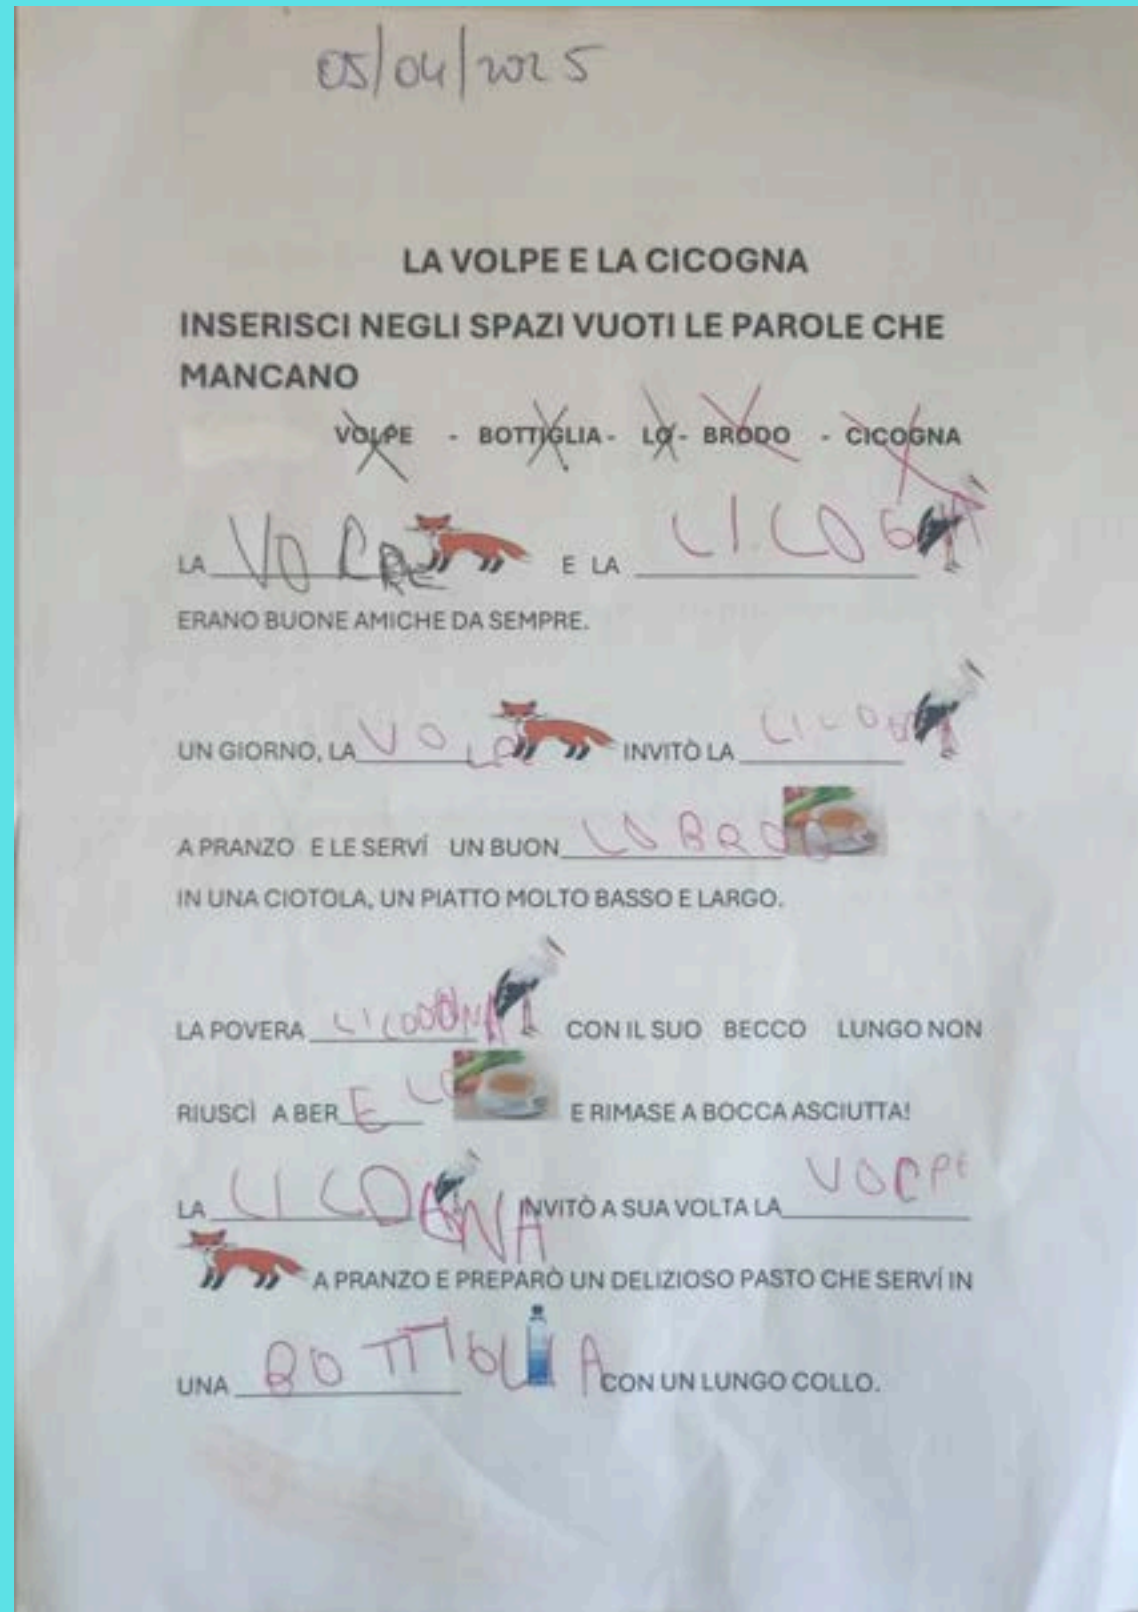 05/04/2025
LA VOLPE E LA CICOGNA
INSERISCI NEGLI SPAZI VUOTI LE PAROLE CHE
MANCANO
VOLPE - BOTTIGLIA - LO - BRODO - CICOGNA
LA VOLPE E LA CICOGNA
ERANO BUONE AMICHE DA SEMPRE.
UN GIORNO, LA VOLPE INVITÒ LA
A PRANZO E LE SERVÍ UN BUON LO BRODO
IN UNA CIOTOLA, UN PIATTO MOLTO BASSO E LARGO.
LA POVERA CICOGNA CON IL SUO BECCO LUNGO NON
RIUSCÌ A BER E LO E RIMASE A BOCCA ASCIUTTA!
LA CICOGNA INVITÒ A SUA VOLTA LA VOLPE
A PRANZO E PREPARÒ UN DELIZIOSO PASTO CHE SERVÍ IN
UNA BOTTIGLIA CON UN LUNGO COLLO.